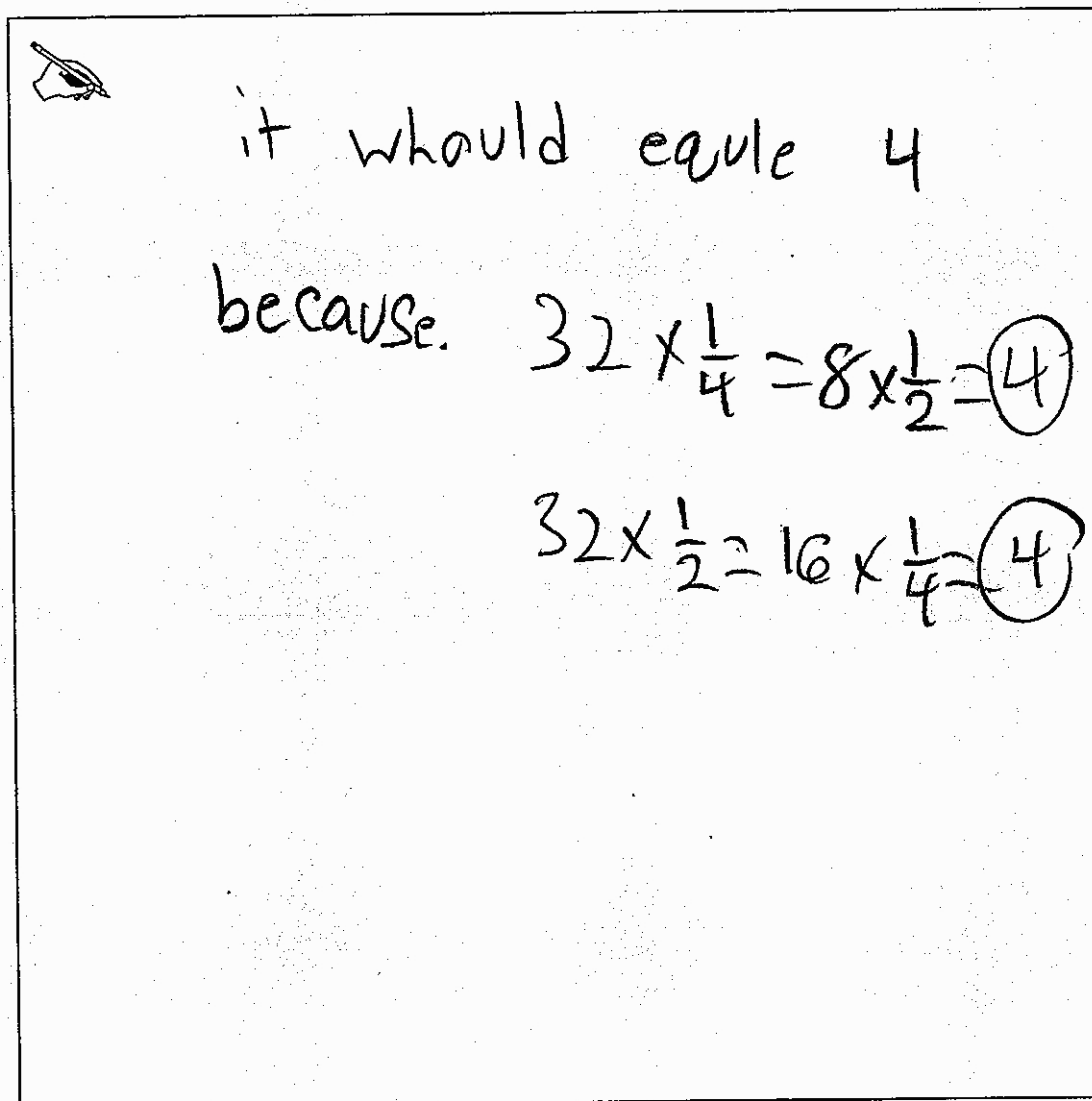 it whould equle 4
because. 32 × 1/4 = 8 × 1/2 = 4
32 × 1/2 = 16 × 1/4 = 4